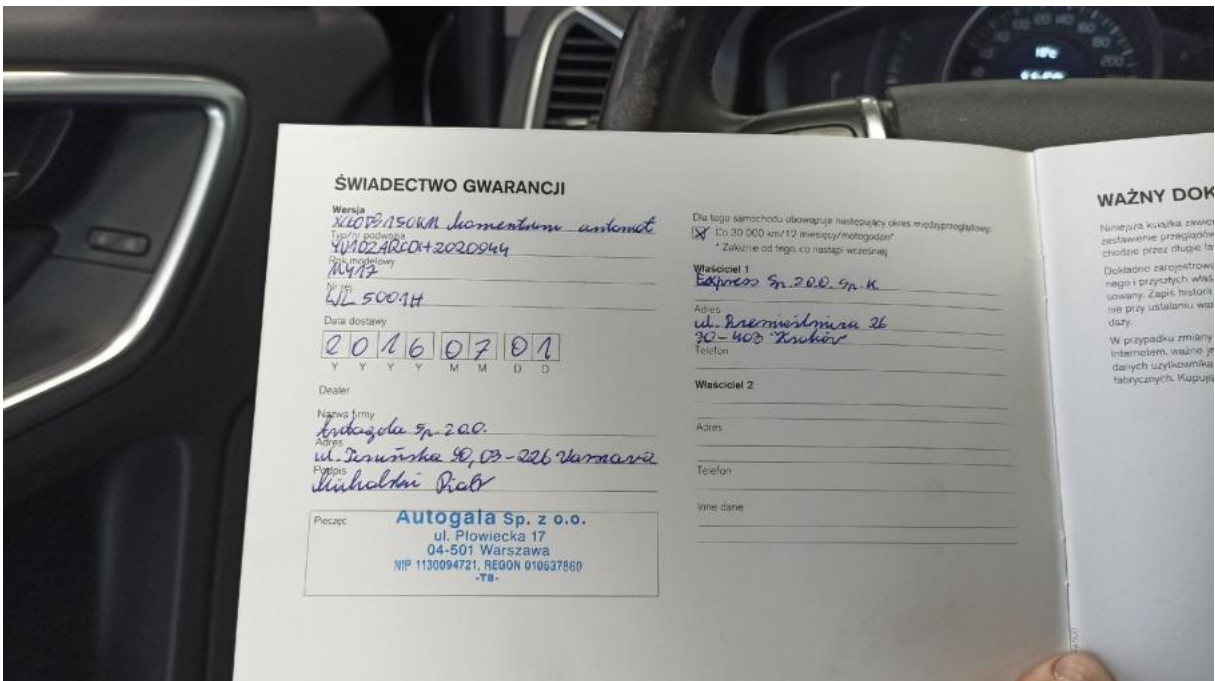 ŚWIADECTWO GWARANCJI
Wersja
XC60 D3 150KM Momentum automat
Typ/nr podwozia
YV1DZARCDH2020944
Rok modelowy
MY17
Nr rej.
WL 5001H
Data dostawy
2 0 1 6 0 7 0 1
Y Y Y Y M M D D
Dealer
Nazwa firmy
Sp. z o.o.
Adres
ul. 90, 03-226 Warszawa
Podpis
Michalski Piotr
Pieczęć
Autogala Sp. z o.o.
ul. Płowiecka 17
04-501 Warszawa
NIP 1130094721, REGON 010637860
-T8-
Dla tego samochodu obowiązuje następujący okres międzyprzeglądowy:
Co 30 000 km/12 miesięcy/motogodzin*
* Zależnie od tego, co nastąpi wcześniej
Właściciel 1
Express Sp. z o.o. Sp. K.
Adres
ul. 26
30-403 Kraków
Telefon
Właściciel 2
Adres
Telefon
Inne dane
WAŻNY DOK
Niniejsza książka zawier
zestawienie przeglądów
chodzie przez długie lat
Dokładne zarejestrowa
nego i przyszłych właś
sowany. Zapis historii
nie przy ustalaniu wa
daży.
W przypadku zmiany
Internetem, ważne je
danych użytkownika
fabrycznych. Kupują